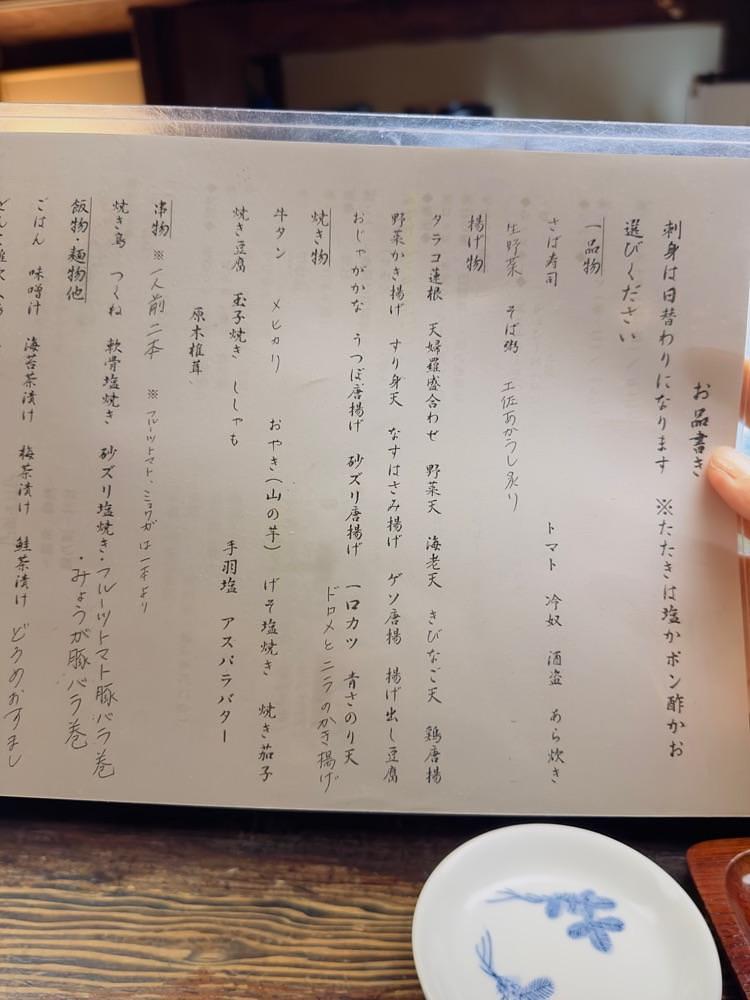 お品書き
刺身は日替わりになります　※たたきは塩かポン酢かお
選びください
一品物
さば寿司　トマト　冷奴　酒盗　あら炊き
生野菜　そば粥　土佐あかうし炙り
揚げ物
タラコ蓮根　天婦羅盛合わせ　野菜天　海老天　きびなご天　鶏唐揚
野菜かき揚げ　すり身天　なすはさみ揚げ　ゲソ唐揚　揚げ出し豆腐
おじゃがかな　うつぼ唐揚げ　砂ズリ唐揚げ　一口カツ　青さのり天
ドロメとニラのかき揚げ
焼き物
牛タン　メヒカリ　おやき（山の芋）　げそ塩焼き　焼き茄子
焼き豆腐　玉子焼き　ししゃも　手羽塩　アスパラバター
原木椎茸
串物　※一人前二本　※フルーツトマト、ミョウガは一本より
焼き鳥　つくね　軟骨塩焼き　砂ズリ塩焼き・フルーツトマト豚バラ巻
・みょうが豚バラ巻
飯物・麺物他
ごはん　味噌汁　海苔茶漬け　梅茶漬け　鮭茶漬け　どろめおすまし